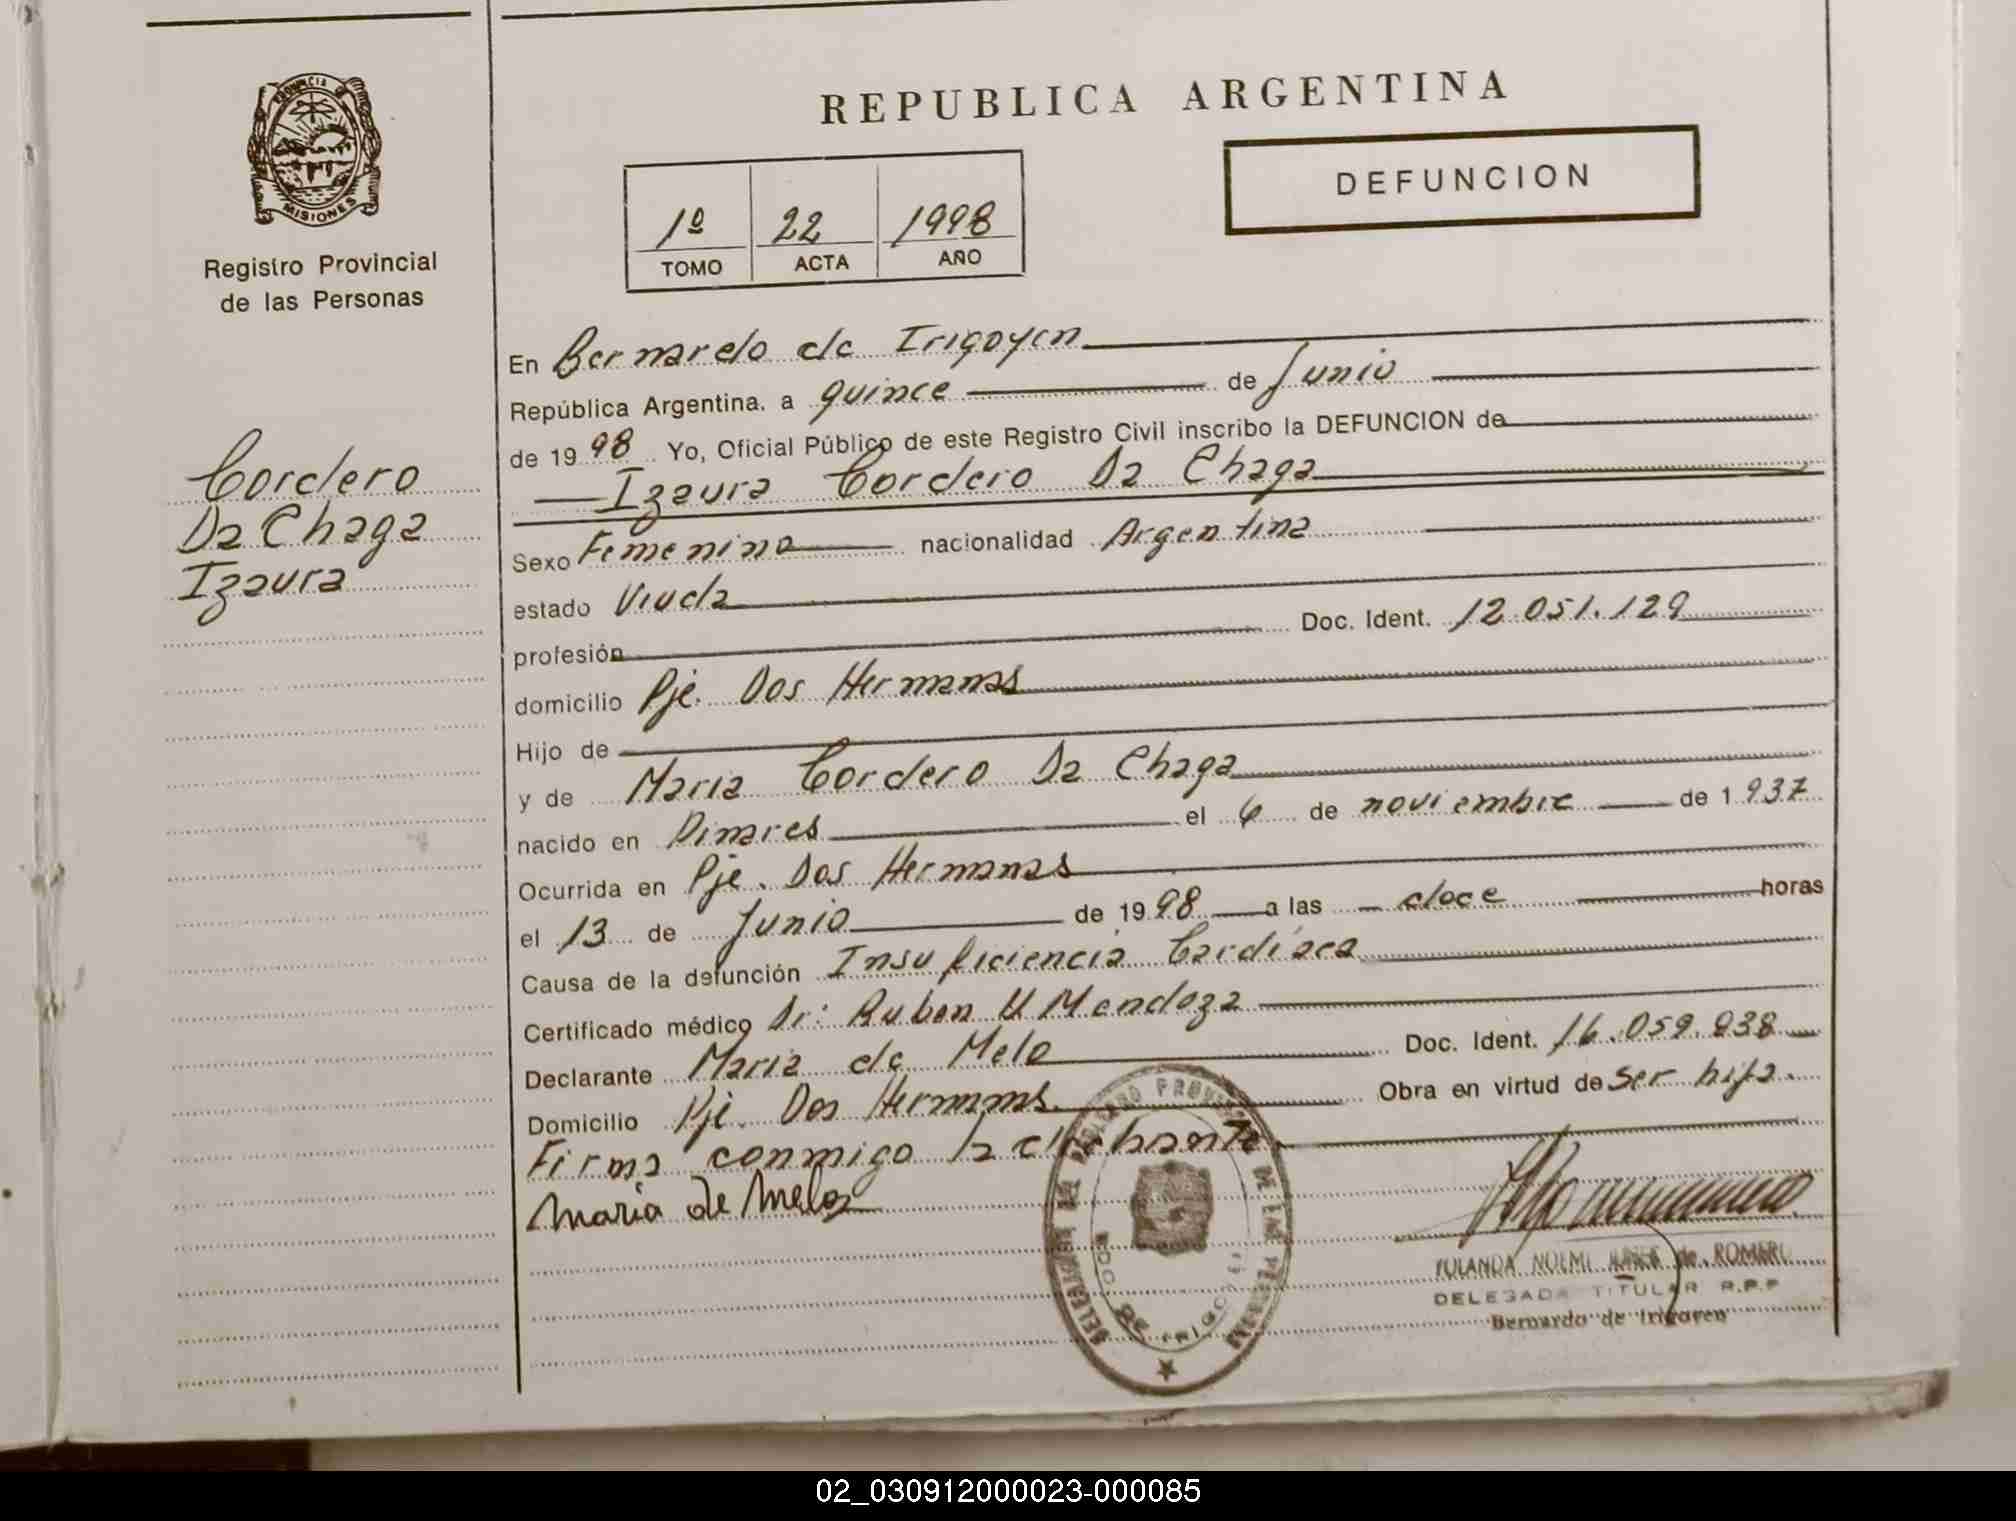 PROVINCIA DE
MISIONES
Registro Provincial
de las Personas
Cordero
Da Chaga
Izaura
REPUBLICA ARGENTINA
DEFUNCION
1º 22 1998
TOMO ACTA AÑO
En Bernardo de Irigoyen
República Argentina. a quince de Junio
de 1998 Yo, Oficial Público de este Registro Civil inscribo la DEFUNCION de
Izaura Cordero Da Chaga
Sexo Femenino nacionalidad Argentina
estado Viuda
profesión Doc. Ident. 12.051.129
domicilio Pje. Dos Hermanas
Hijo de
y de Maria Cordero Da Chaga
nacido en el 6 de noviembre de 1937
Ocurrida en Pje. Dos Hermanas
el 13 de Junio de 1998 a las doce horas
Causa de la defunción Insuficiencia Cardíaca
Certificado médico Dr: Ruben Mendoza
Declarante Maria de Melo Doc. Ident. 16.059.838
Domicilio Pje. Dos Hermanas Obra en virtud de ser hija.
Firma conmigo la
Maria de Melo
YOLANDA NOEMI de ROMERO
DELEGADA TITULAR R.P.P
Bernardo de Irigoyen
02_030912000023-000085